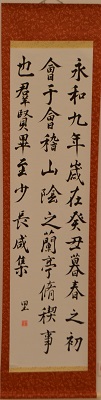 永和九年歳在癸丑暮春之初
會于會稽山陰之蘭亭脩稧事
也羣賢畢至少長咸集
里